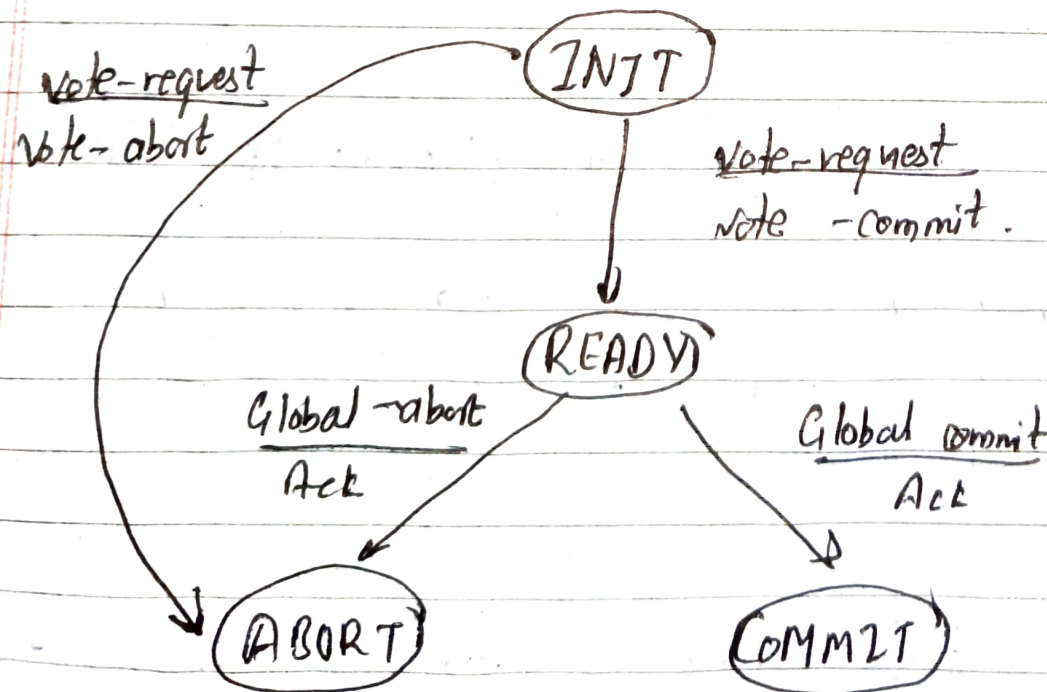 INIT
Vote-request
Vote-abort
Vote-request
Vote-commit.
READY
Global-abort
Ack
Global commit
Ack
ABORT
COMMIT